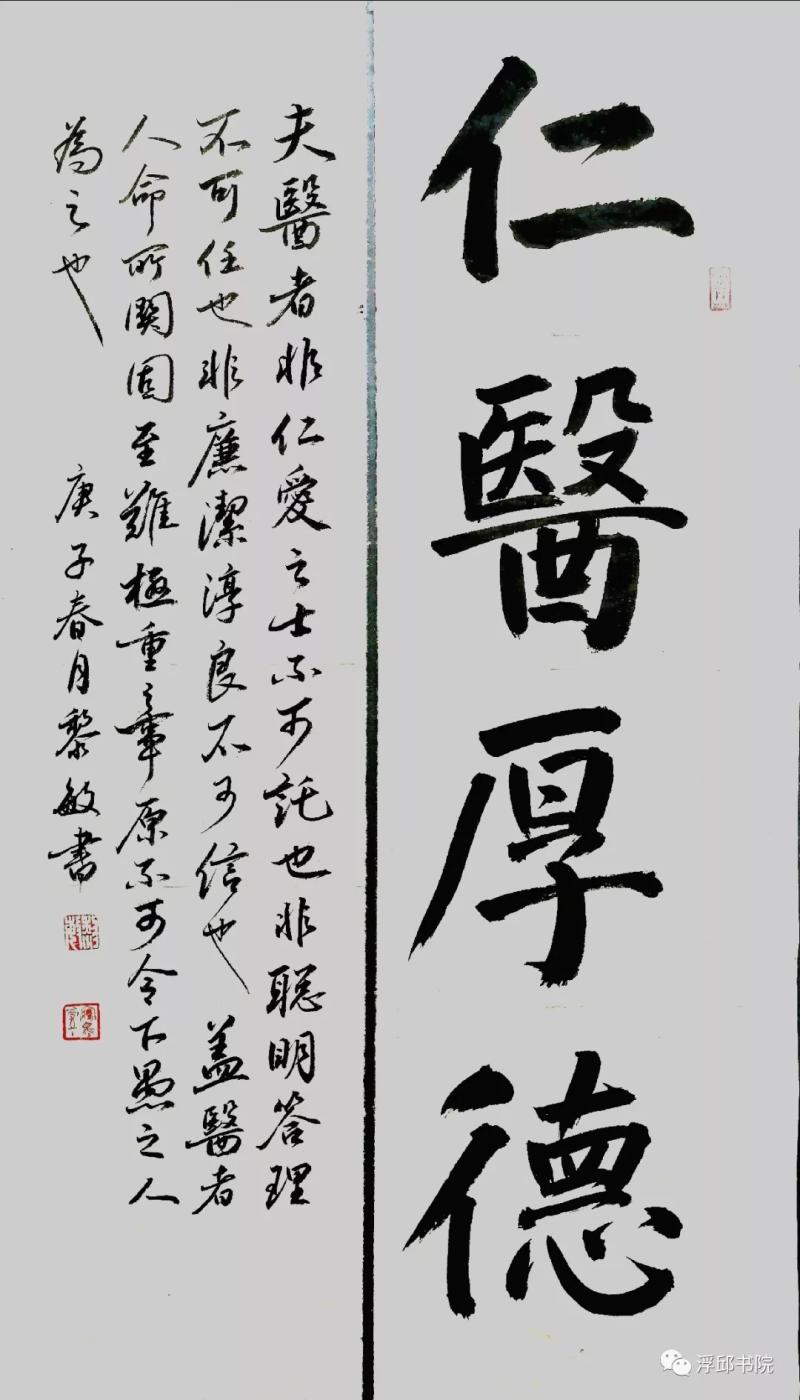 仁醫厚德
夫醫者非仁愛之士不可託也非聰明答理
不可任也非廉潔淳良不可信也蓋醫者
人命所關固至難極重之事原不可令下愚之人
為之也
庚子春月黎敏書
浮邱书院